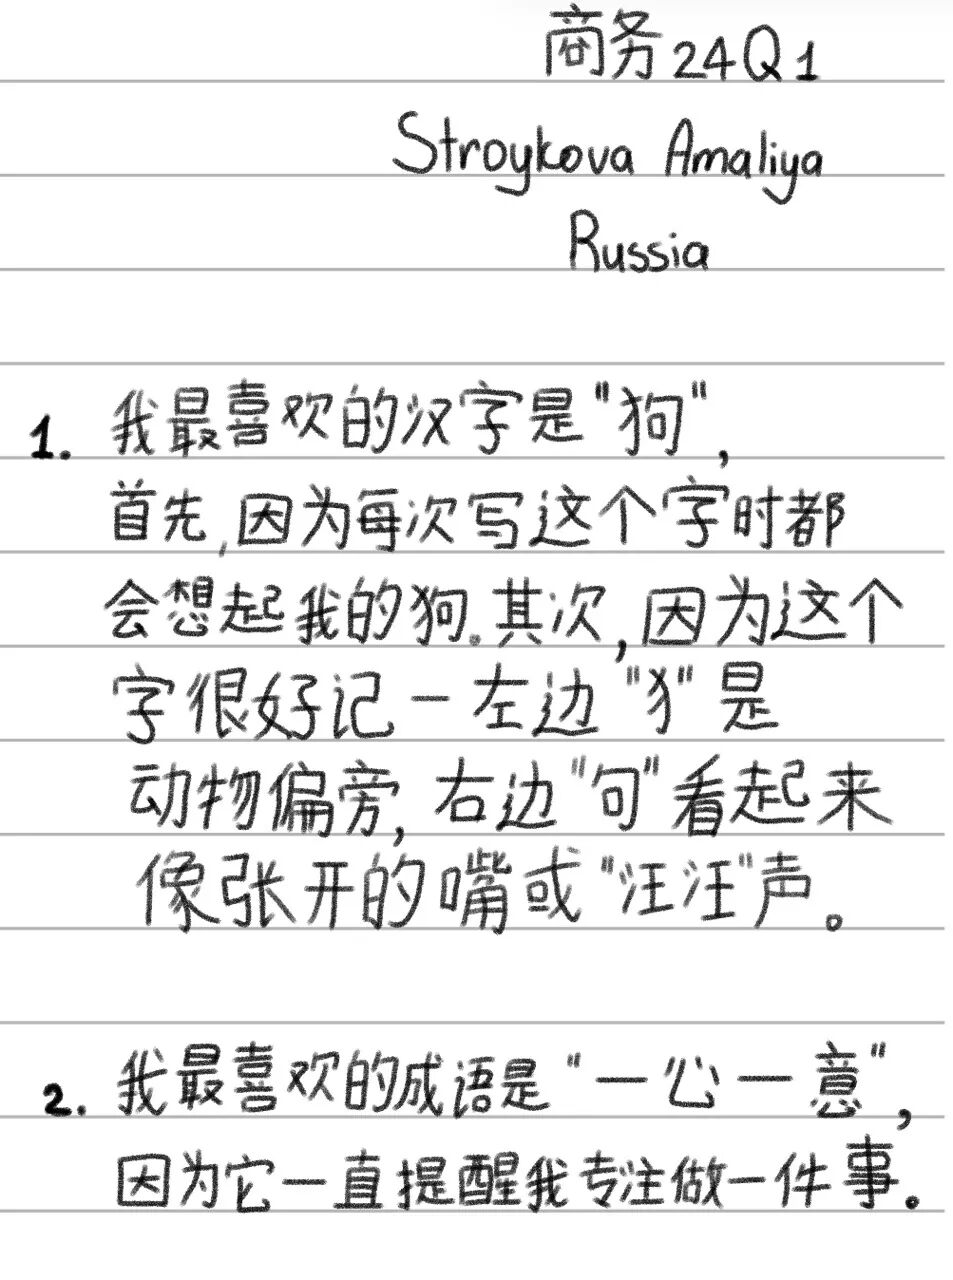 商务24Q1
Stroykova Amaliya
Russia
1. 我最喜欢的汉字是"狗",
首先,因为每次写这个字时都
会想起我的狗.其次,因为这个
字很好记一左边"犭"是
动物偏旁,右边"句"看起来
像张开的嘴或"汪汪"声。
2. 我最喜欢的成语是"一心一意",
因为它一直提醒我专注做一件事。